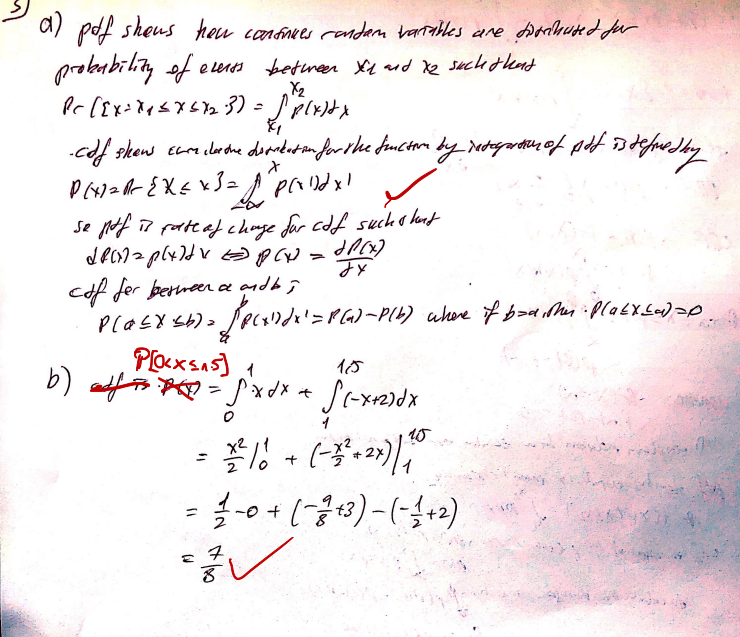 5)
a) pdf shows how continues random variables are distributed for
probability of events between x1 and x2 such that
Pr ({x: x1 ≤ x ≤ x2}) = ∫_{x1}^{x2} p(x)dx
. cdf shows cumulative distribution for the function by integration of pdf is defined by
P(x) = Pr {X ≤ x} = ∫_{-∞}^{x} p(x')dx'
so pdf is rate of change for cdf such that
dP(x) = p(x)dx ⟺ p(x) = dP(x)/dx
cdf for between a and b ;
P(a ≤ X ≤ b) = ∫_{a}^{b} p(x')dx' = P(a) - P(b) where if b=a, then . P(a ≤ x ≤ a) = 0
P[0<x≤1.5]
b) cdf is P(x) = ∫_{0}^{1} x dx + ∫_{1}^{1.5} (-x+2)dx
= x²/2 |_{0}^{1} + (-x²/2 + 2x) |_{1}^{1.5}
= 1/2 - 0 + (-9/8 + 3) - (-1/2 + 2)
= 7/8